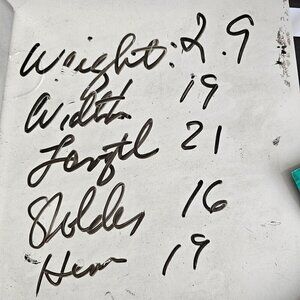 Weight: 2.9
Width 19
Length 21
Sholder 16
Hem 19